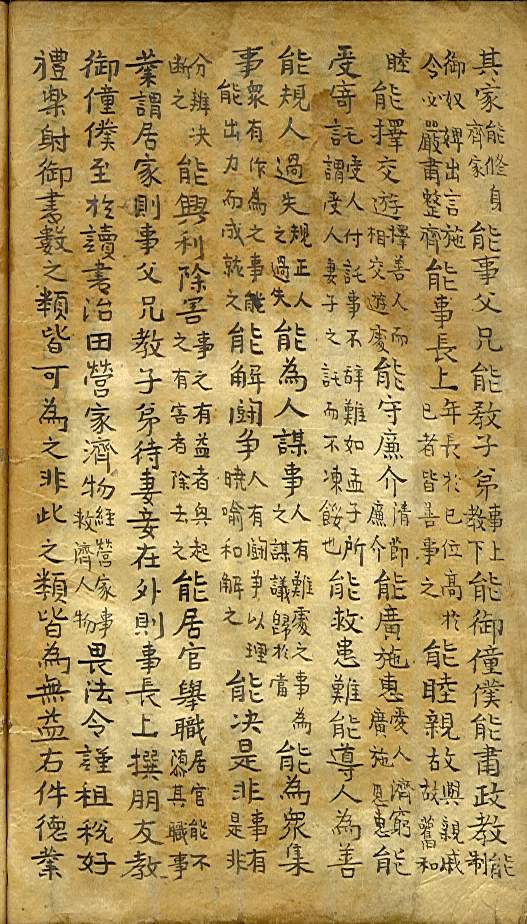 其家能修身齊家能事父兄能敎子弟事上教下能御僮僕能肅政教能制
御奴婢出言施令必嚴肅整齊能事長上年長於已位高於已者皆善事之能睦親故與親戚故舊和
睦能擇交遊擇善人而相交遊處能守廉介清節廉介能廣施惠愛人濟窮廣施恩惠能
受寄託受人付託事不辭難如孟子所謂受人妻子之託而不凍餒也能救患難能導人為善
能規人過失規正人之過失能為人謀事人有難處之事為之謀議歸於當能為衆集
事衆有作為之事能能出力而成就之能解鬪争人有鬪爭以理曉喻和解之能决是非事有是非
分辨决断之能興利除害事之有益者興起之有害者除去之能居官舉職居官能不隳其職事
業謂居家則事父兄教子弟待妻妾在外則事長上撰朋友教
御僮僕至於讀書治田營家濟物經營家事救濟人物畏法令謹租稅好
禮樂射御書數之類皆可為之非此之類皆為無益右件德業